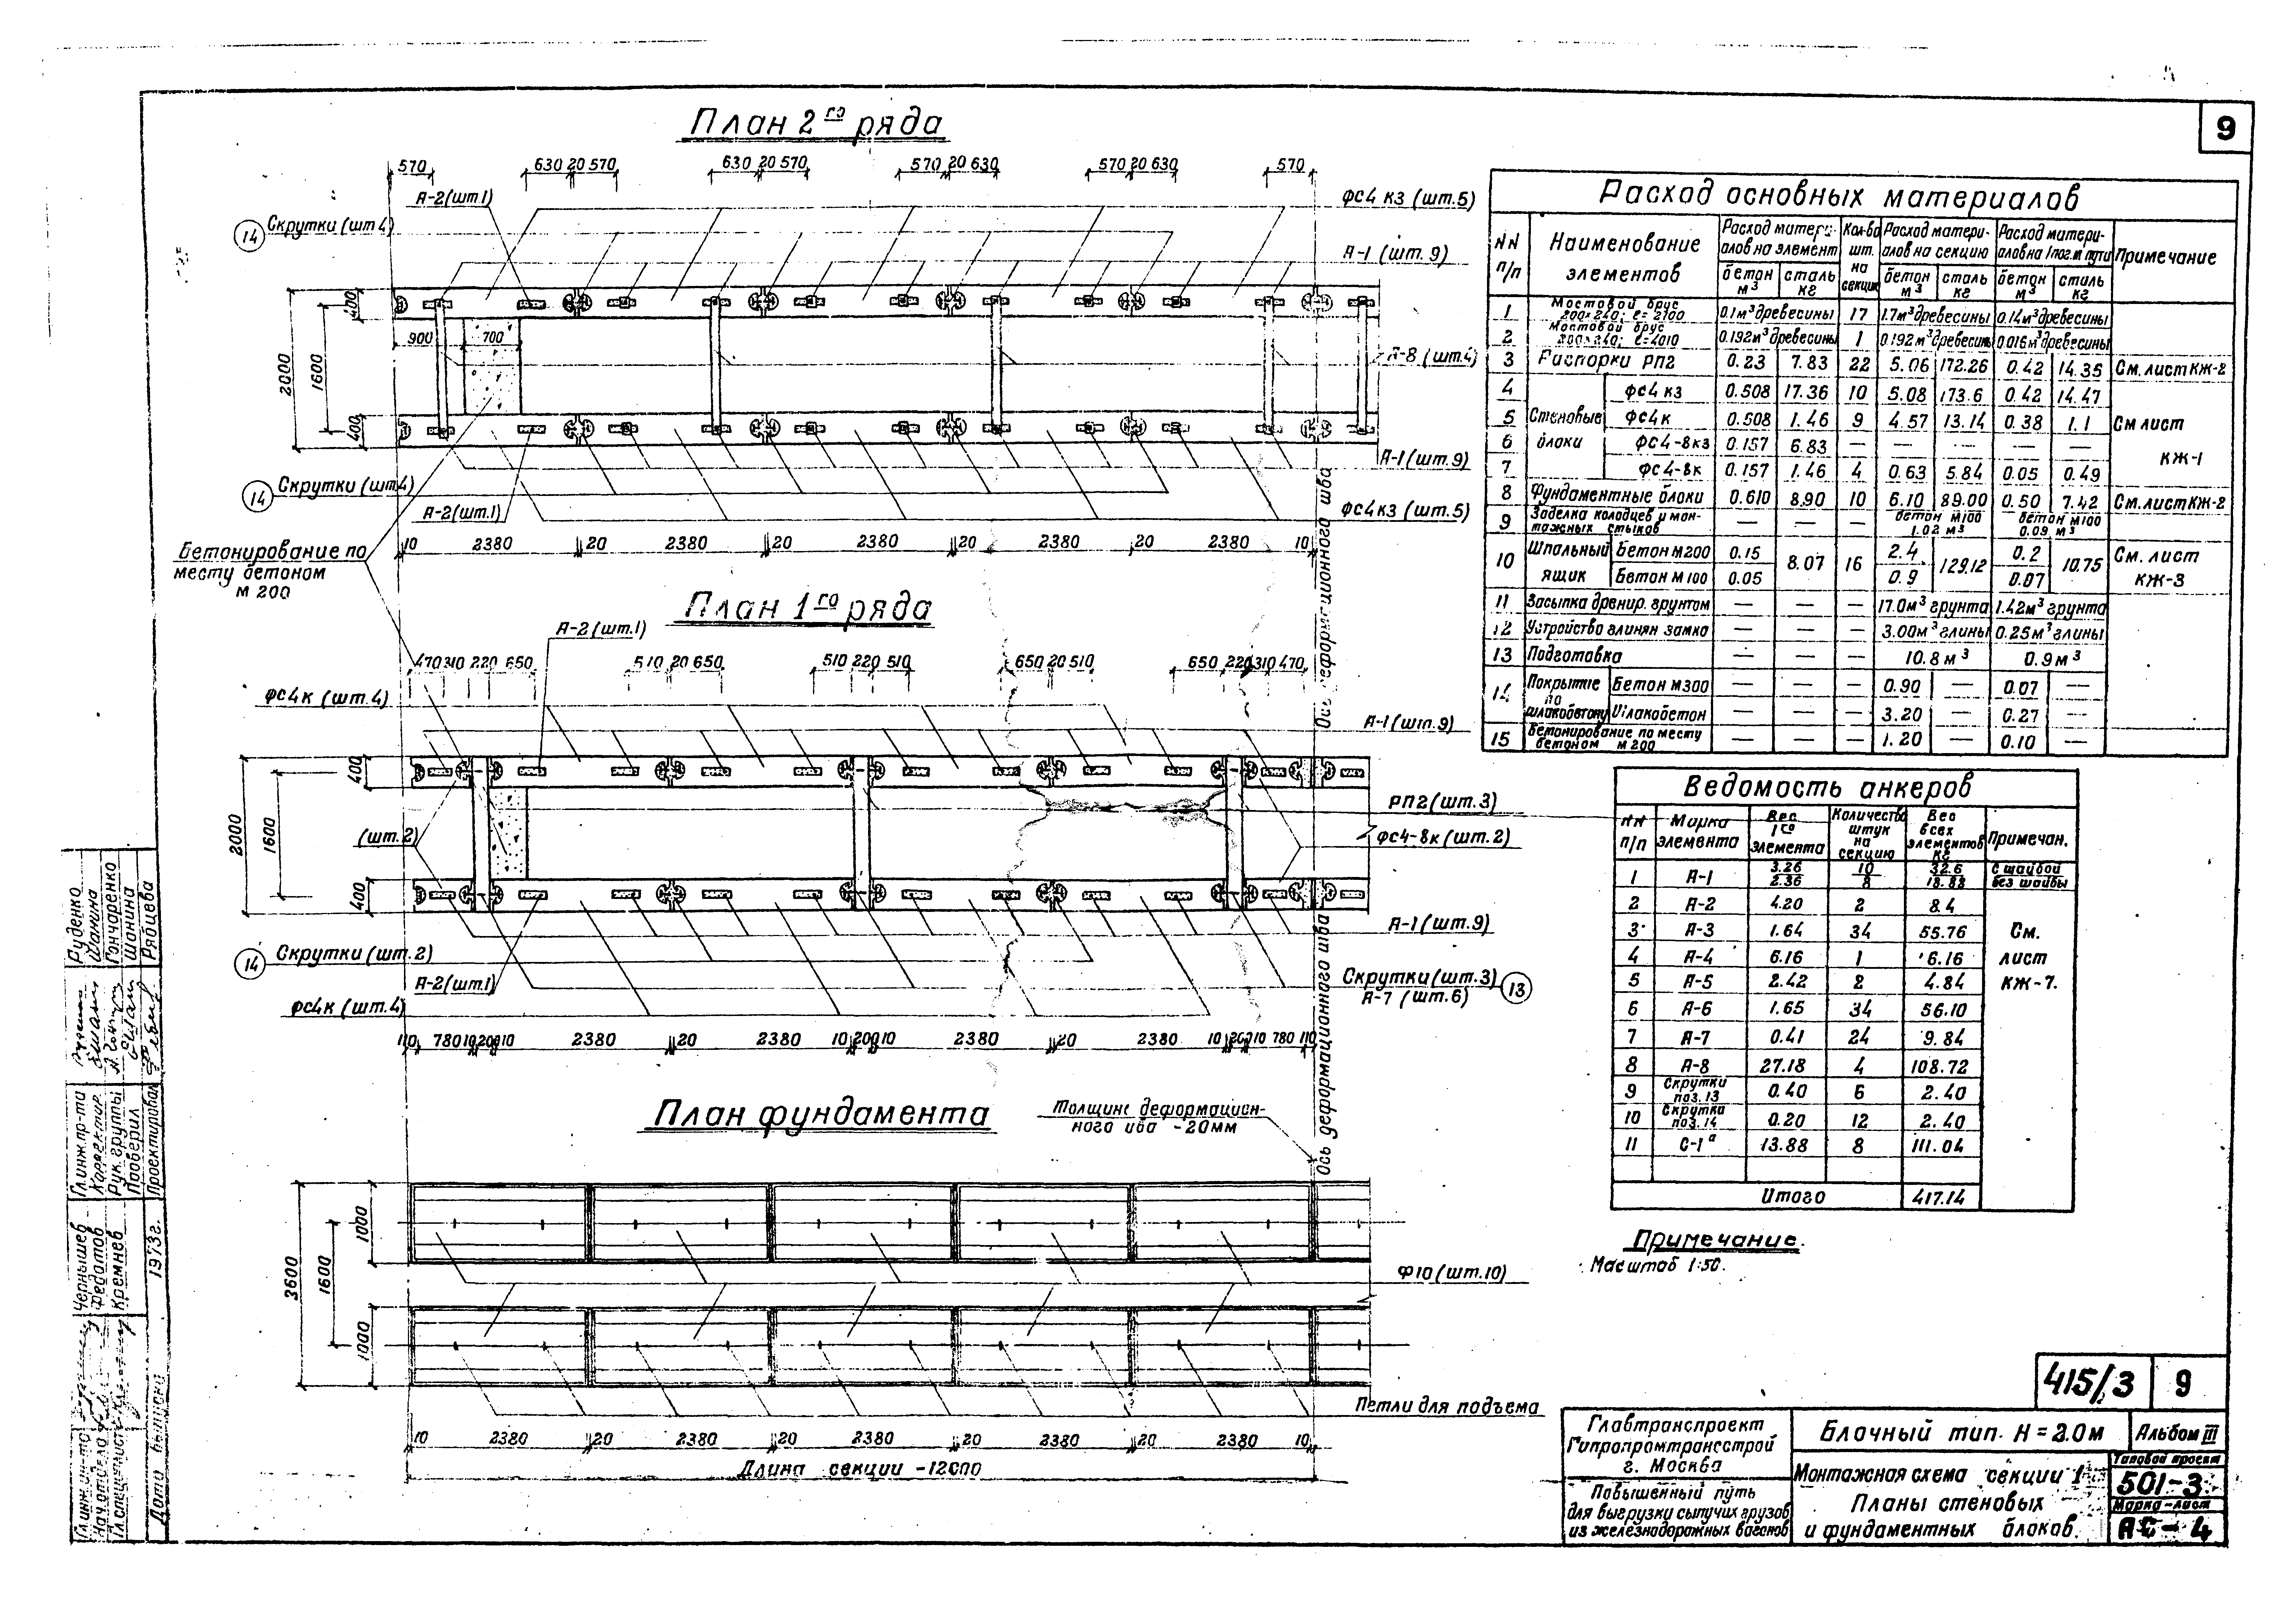 9
План 2го ряда
570 630 20 570 630 20 570 570 20 630 570 20 630 570
А-2 (шт.1)
ФС4 КЗ (шт.5)
14 Скрутки (шт 4)
А-1 (шт. 9)
400
900 700
2000 1600
А-8 (шт.4)
400
А-1 (шт.9)
14 Скрутки (шт.4)
А-2 (шт.1)
ФС4КЗ (шт.5)
10 2380 20 2380 20 2380 20 2380 20 2380 10
Бетонирование по
месту бетоном
М 200
План 1го ряда
А-2 (шт.1)
470 310 220 650 510 20 650 510 220 510 650 20 510 650 220 310 470
ФС4К (шт.4)
А-1 (шт.9)
400
РП2 (шт.3)
2000 1600
(шт.2)
ФС4-8К (шт.2)
400
А-1 (шт.9)
14 Скрутки (шт.2)
А-2 (шт.1)
Скрутки (шт.3) 13
А-7 (шт.6)
ФС4К (шт.4)
110 780 10 200 10 2380 20 2380 10 200 10 2380 20 2380 10 200 10 780 110
Ось деформационного шва
Ось деформационного шва
План фундамента
Толщина деформацион-
ного шва -20мм
1000
3600 1600
Ф10 (шт.10)
1000
Петли для подъема
10 2380 20 2380 20 2380 20 2380 20 2380 10
Длина секции -12000
Расход основных материалов
NN п/п Наименование элементов Расход матери-алов на элемент Кол-во шт. на секцию Расход матери-алов на секцию Расход матери-алов на 1пог.м пути Примечание
бетон м3 сталь кг бетон м3 сталь кг бетон м3 сталь кг
1 Мостовой брус 200×240; ℓ= 2700 0.1м3древесины 17 1.7м3древесины 0.14м3древесины
2 Мостовой брус 200×240; ℓ=4010 0.192м3древесины 1 0.192м3древесины 0.016м3древесины
3 Распорки РП2 0.23 7.83 22 5.06 172.26 0.42 14.35 См.лист КЖ-2
4 Стеновые блоки ФС4 КЗ 0.508 17.36 10 5.08 173.6 0.42 14.47
5 ФС4К 0.508 1.46 9 4.57 13.14 0.38 1.1 См лист
6 ФС4-8КЗ 0.157 6.83 — — — — —
КЖ-1
7 ФС4-8К 0.157 1.46 4 0.63 5.84 0.05 0.49
8 Фундаментные блоки 0.610 8.90 10 6.10 89.00 0.50 7.42 См.лист КЖ-2
9 Заделка колодцев и мон-тажных стыков — — — бетон М100 1.02 м3 бетон М100 0.09 м3
10 Шпальный ящик Бетон М200 0.15 8.07 16 2.4 129.12 0.2 10.75 См. лист
Бетон М 100 0.05 0.9 0.07 КЖ-3
11 Засыпка дренир. грунтом — — — 17.0м3 грунта 1.42м3 грунта
12 Устройство глинян замка — — — 3.00м3 глины 0.25м3 глины
13 Подготовка — — — 10.8 м3 0.9 м3
14 Покрытие по шлакобетону Бетон М300 — — — 0.90 — 0.07 —
Шлакобетон — — — 3.20 — 0.27 —
15 Бетонирование по месту бетоном М 200 — — — 1.20 — 0.10 —
Ведомость анкеров
NN п/п Марка элемента Вес 1го элемента Количество штук на секцию Вес всех элементов кг Примечан.
1 А-1 3.26 10 32.6 с шайбой
2.36 8 18.88 без шайбы
2 А-2 4.20 2 8.4
3 А-3 1.64 34 55.76 См.
4 А-4 6.16 1 6.16 лист
5 А-5 2.42 2 4.84 КЖ-7.
6 А-6 1.65 34 56.10
7 А-7 0.41 24 9.84
8 А-8 27.18 4 108.72
9 Скрутки поз.13 0.40 6 2.40
10 Скрутка поз.14 0.20 12 2.40
11 С-1а 13.88 8 111.04
Итого 417.14
Примечание.
Масштаб 1:50.
415/3 9
Главтранспроект
Гипропромтрансстрой
г. Москва
Повышенный путь
для выгрузки сыпучих грузов
из железнодорожных вагонов
Блочный тип. Н = 2.0 м
Альбом III
Монтажная схема секции 1
Планы стеновых
и фундаментных блоков.
Типовой проект
501-3
Марка-лист
АС-4
Руденко
Шанина
Гончаренко
Шанина
Рябцева
Гл.инж.пр-та
Корректор
Рук.группы
Проверил
Проектировал
Чернышев
Федотов
Кремнев
1973г.
Гл.инж.ин-та
Нач.отдела
Гл.специалист
Дата выпуска